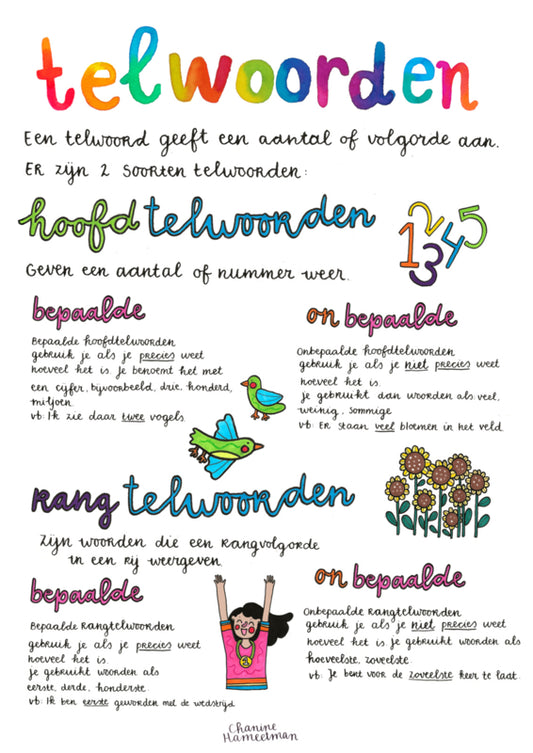 telwoorden
Een telwoord geeft een aantal of volgorde aan.
Er zijn 2 soorten telwoorden:
hoofdtelwoorden
1 2 3 4 5
Geven een aantal of nummer weer.
bepaalde
Bepaalde hoofdtelwoorden
gebruik je als je precies weet
hoeveel het is. Je benoemt het met
een cijfer, bijvoorbeeld, drie, honderd,
miljoen.
vb: Ik zie daar twee vogels.
onbepaalde
Onbepaalde hoofdtelwoorden
gebruik je als je niet precies weet
hoeveel het is.
je gebruikt dan woorden als: veel,
weinig, sommige
vb: Er staan veel bloemen in het veld.
rangtelwoorden
Zijn woorden die een rangvolgorde
in een rij weergeven.
bepaalde
Bepaalde rangtelwoorden
gebruik je als je precies weet
hoeveel het is.
je gebruikt woorden als
eerste, derde, honderste.
vb: Ik ben eerste geworden met de wedstrijd
onbepaalde
Onbepaalde rangtelwoorden
gebruik je als je niet precies weet
hoeveel het is. je gebruikt woorden als
hoeveelste, zoveelste.
vb: Je bent voor de zoveelste keer te laat.
Chanine
Hameetman